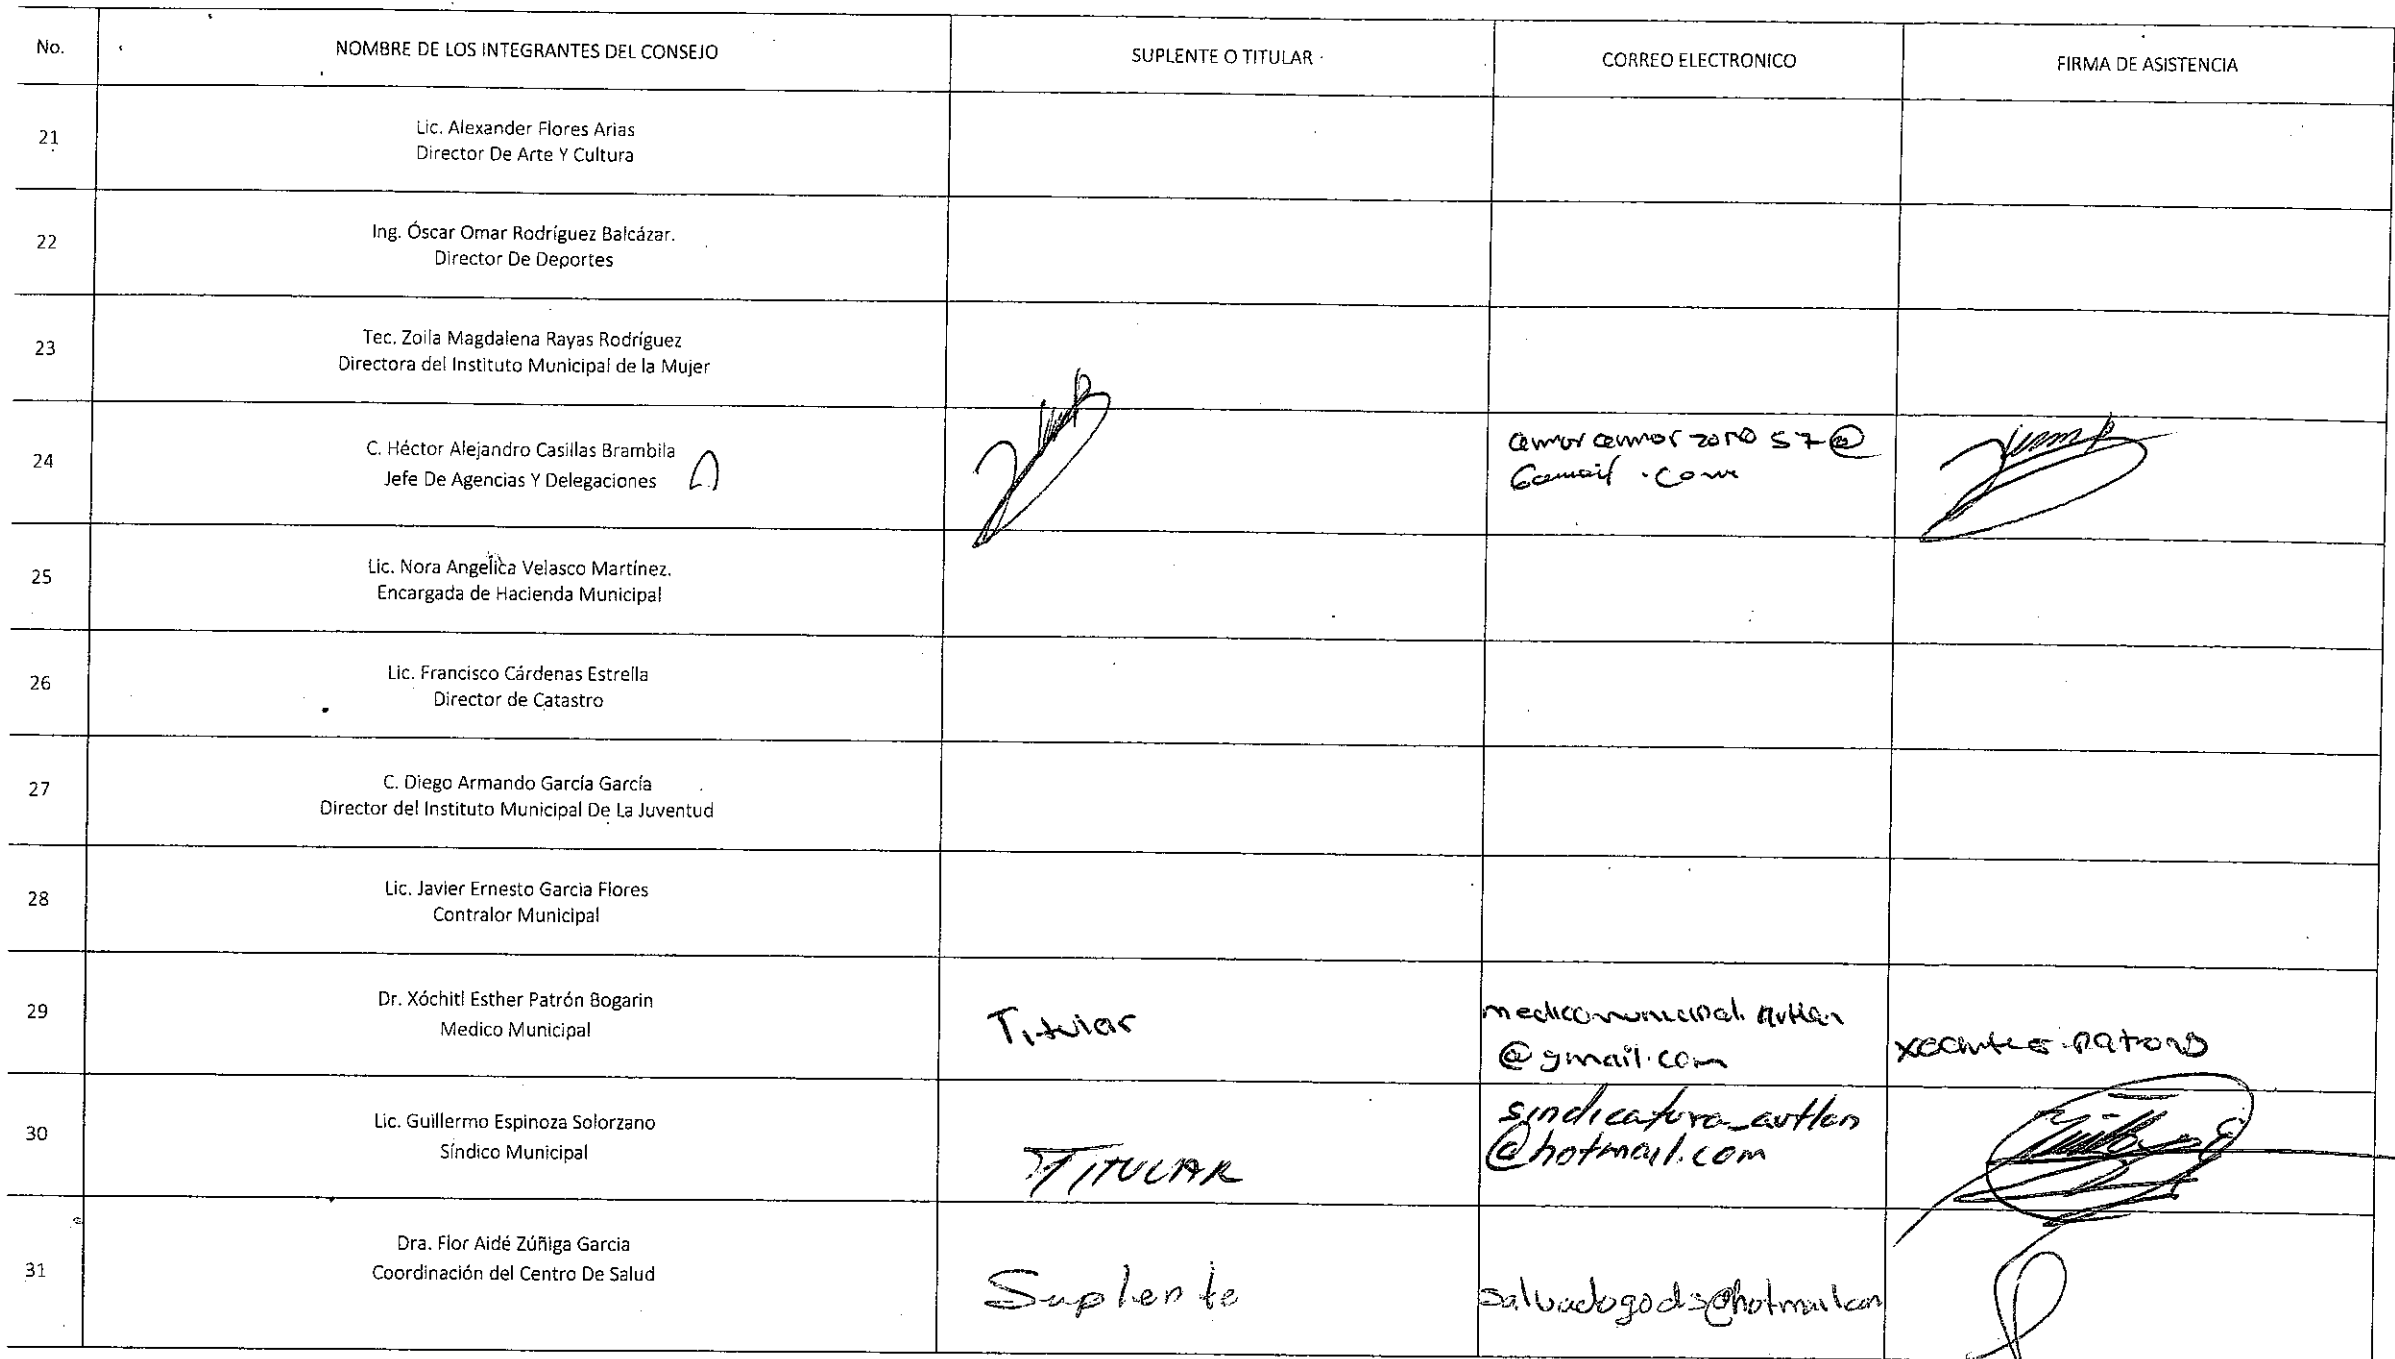 No.
NOMBRE DE LOS INTEGRANTES DEL CONSEJO
SUPLENTE O TITULAR
CORREO ELECTRONICO
FIRMA DE ASISTENCIA
21
Lic. Alexander Flores Arias
Director De Arte Y Cultura
22
Ing. Óscar Omar Rodríguez Balcázar.
Director De Deportes
23
Tec. Zoila Magdalena Rayas Rodríguez
Directora del Instituto Municipal de la Mujer
24
C. Héctor Alejandro Casillas Brambila
Jefe De Agencias Y Delegaciones
25
Lic. Nora Angelica Velasco Martínez.
Encargada de Hacienda Municipal
26
Lic. Francisco Cárdenas Estrella
Director de Catastro
27
C. Diego Armando García García
Director del Instituto Municipal De La Juventud
28
Lic. Javier Ernesto Garcia Flores
Contralor Municipal
29
Dr. Xóchitl Esther Patrón Bogarin
Medico Municipal
Titular
medicomunicipal.autlan
@gmail.com
30
Lic. Guillermo Espinoza Solorzano
Síndico Municipal
TITULAR
sindicatura_autlan
@hotmail.com
31
Dra. Flor Aidé Zúñiga Garcia
Coordinación del Centro De Salud
Suplente